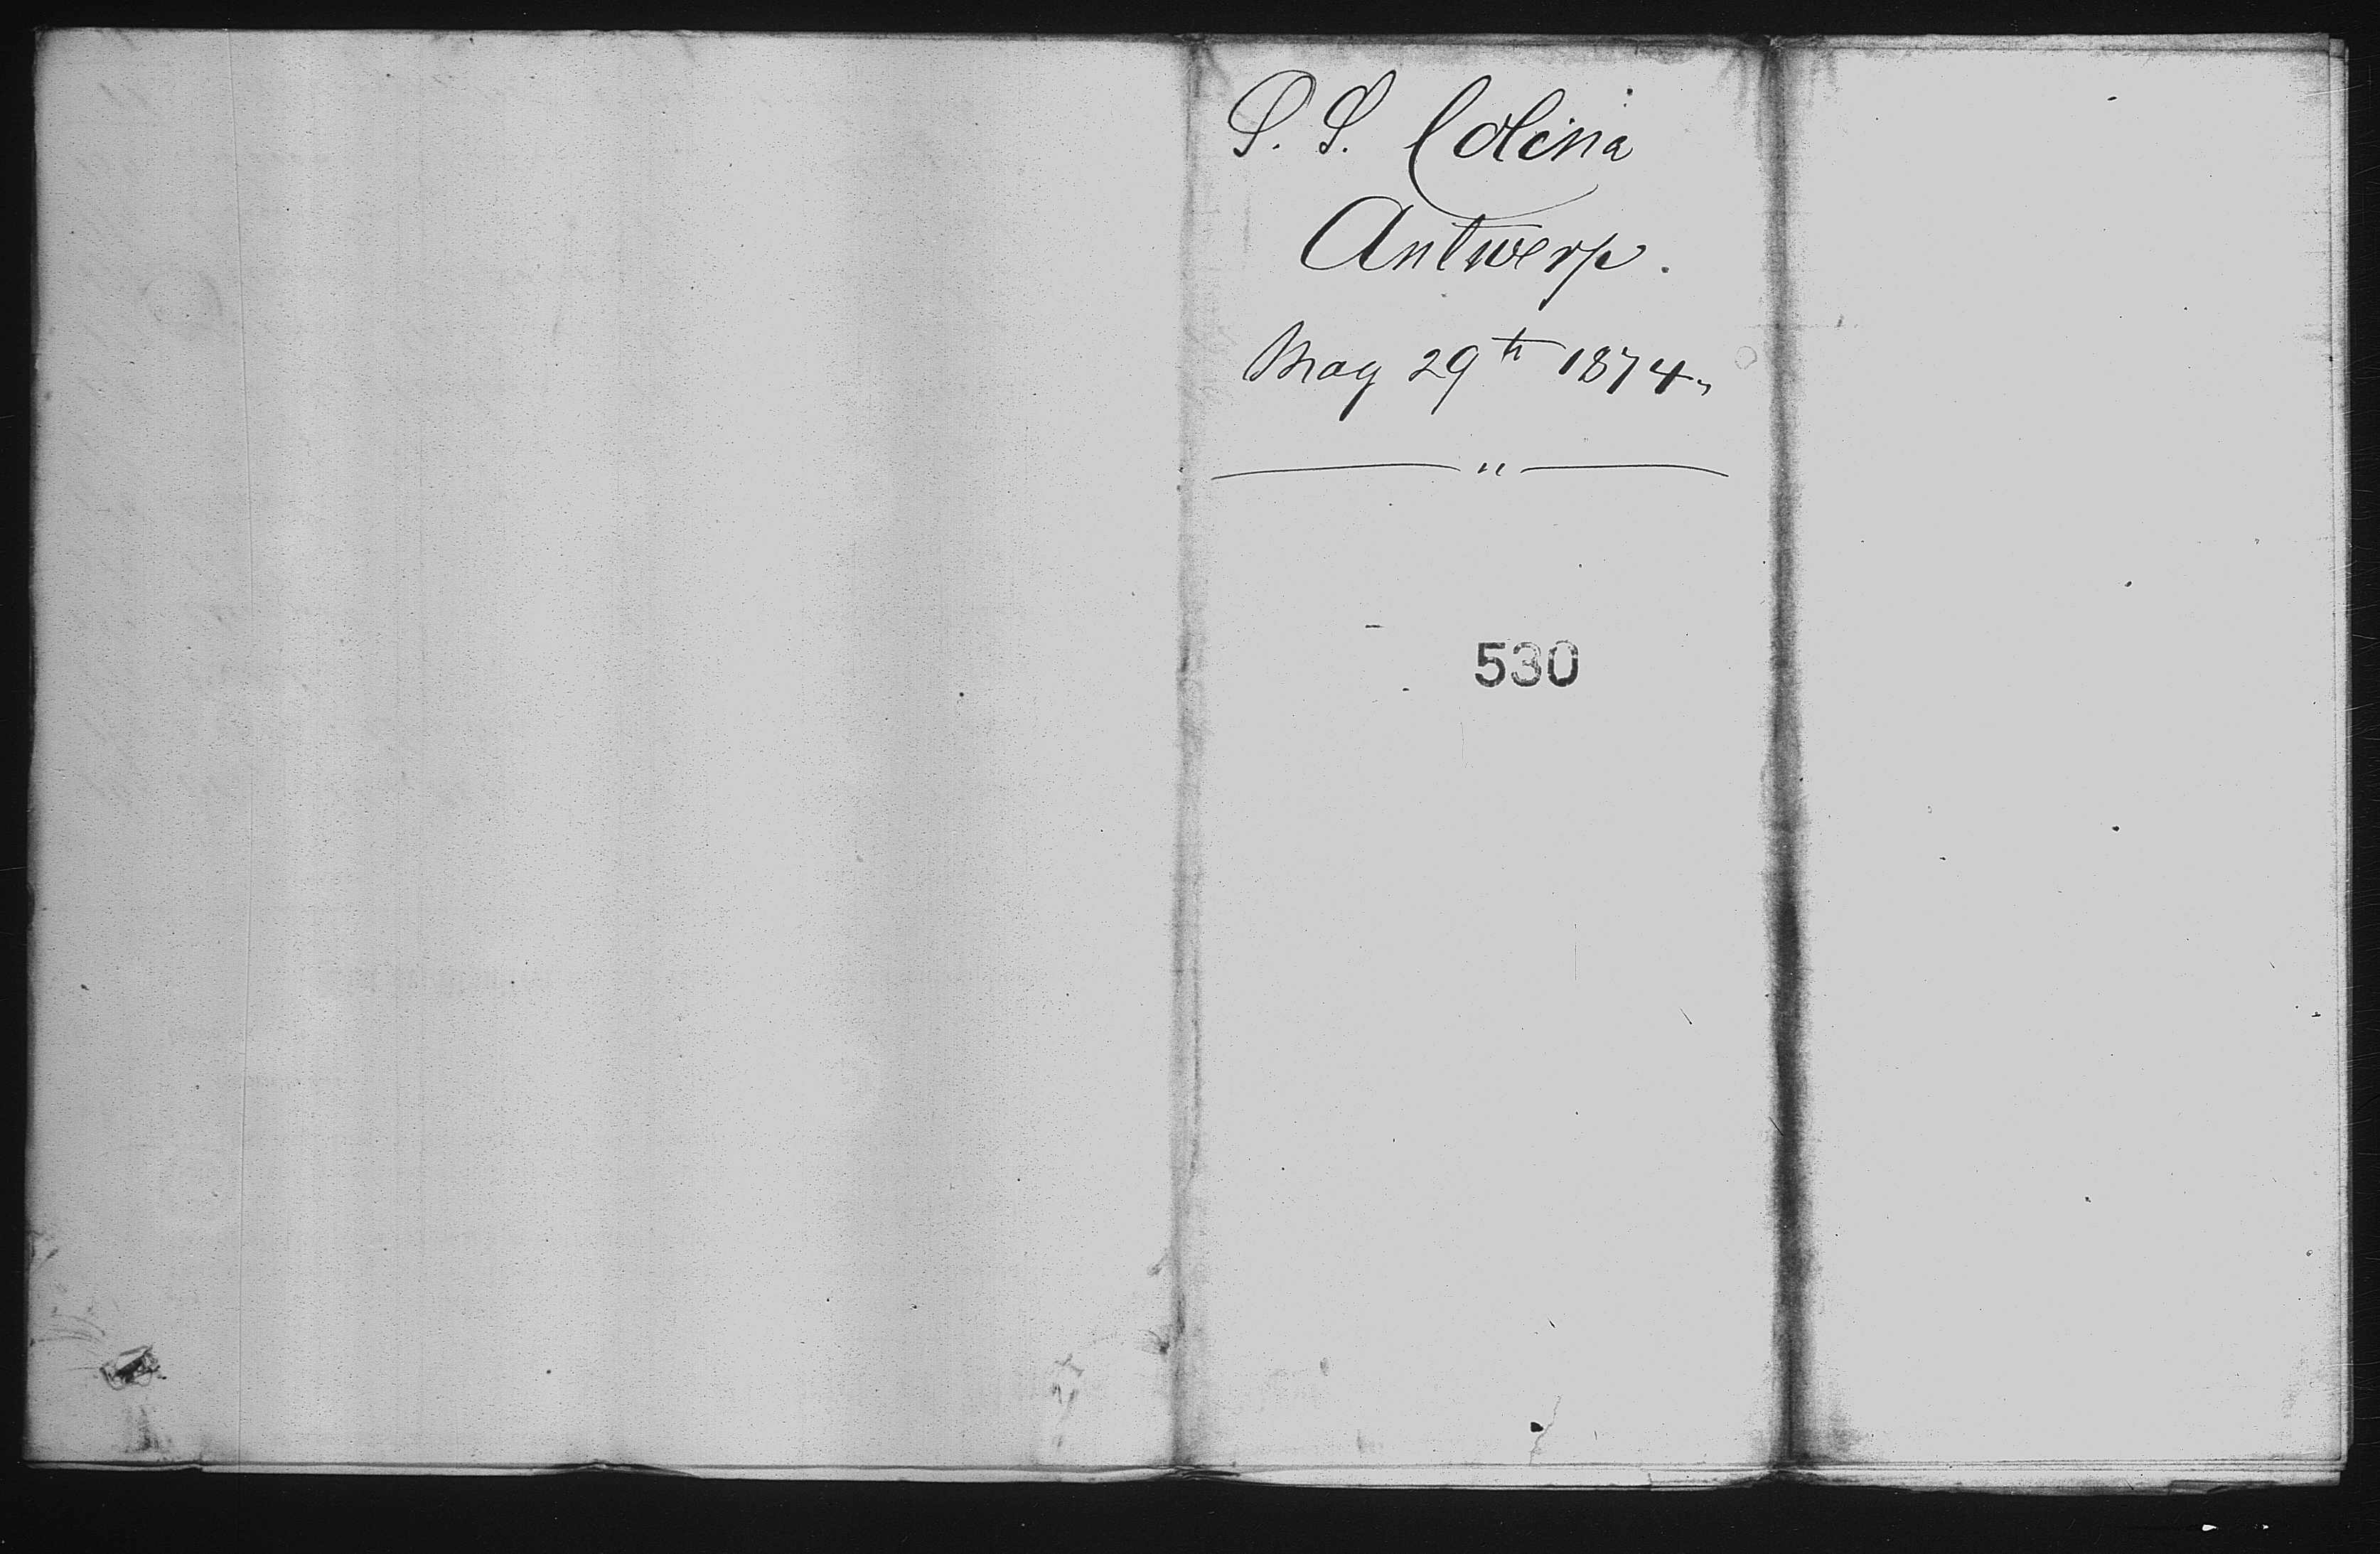 S. S. Colina
Antwerp.
May 29th 1874.
530